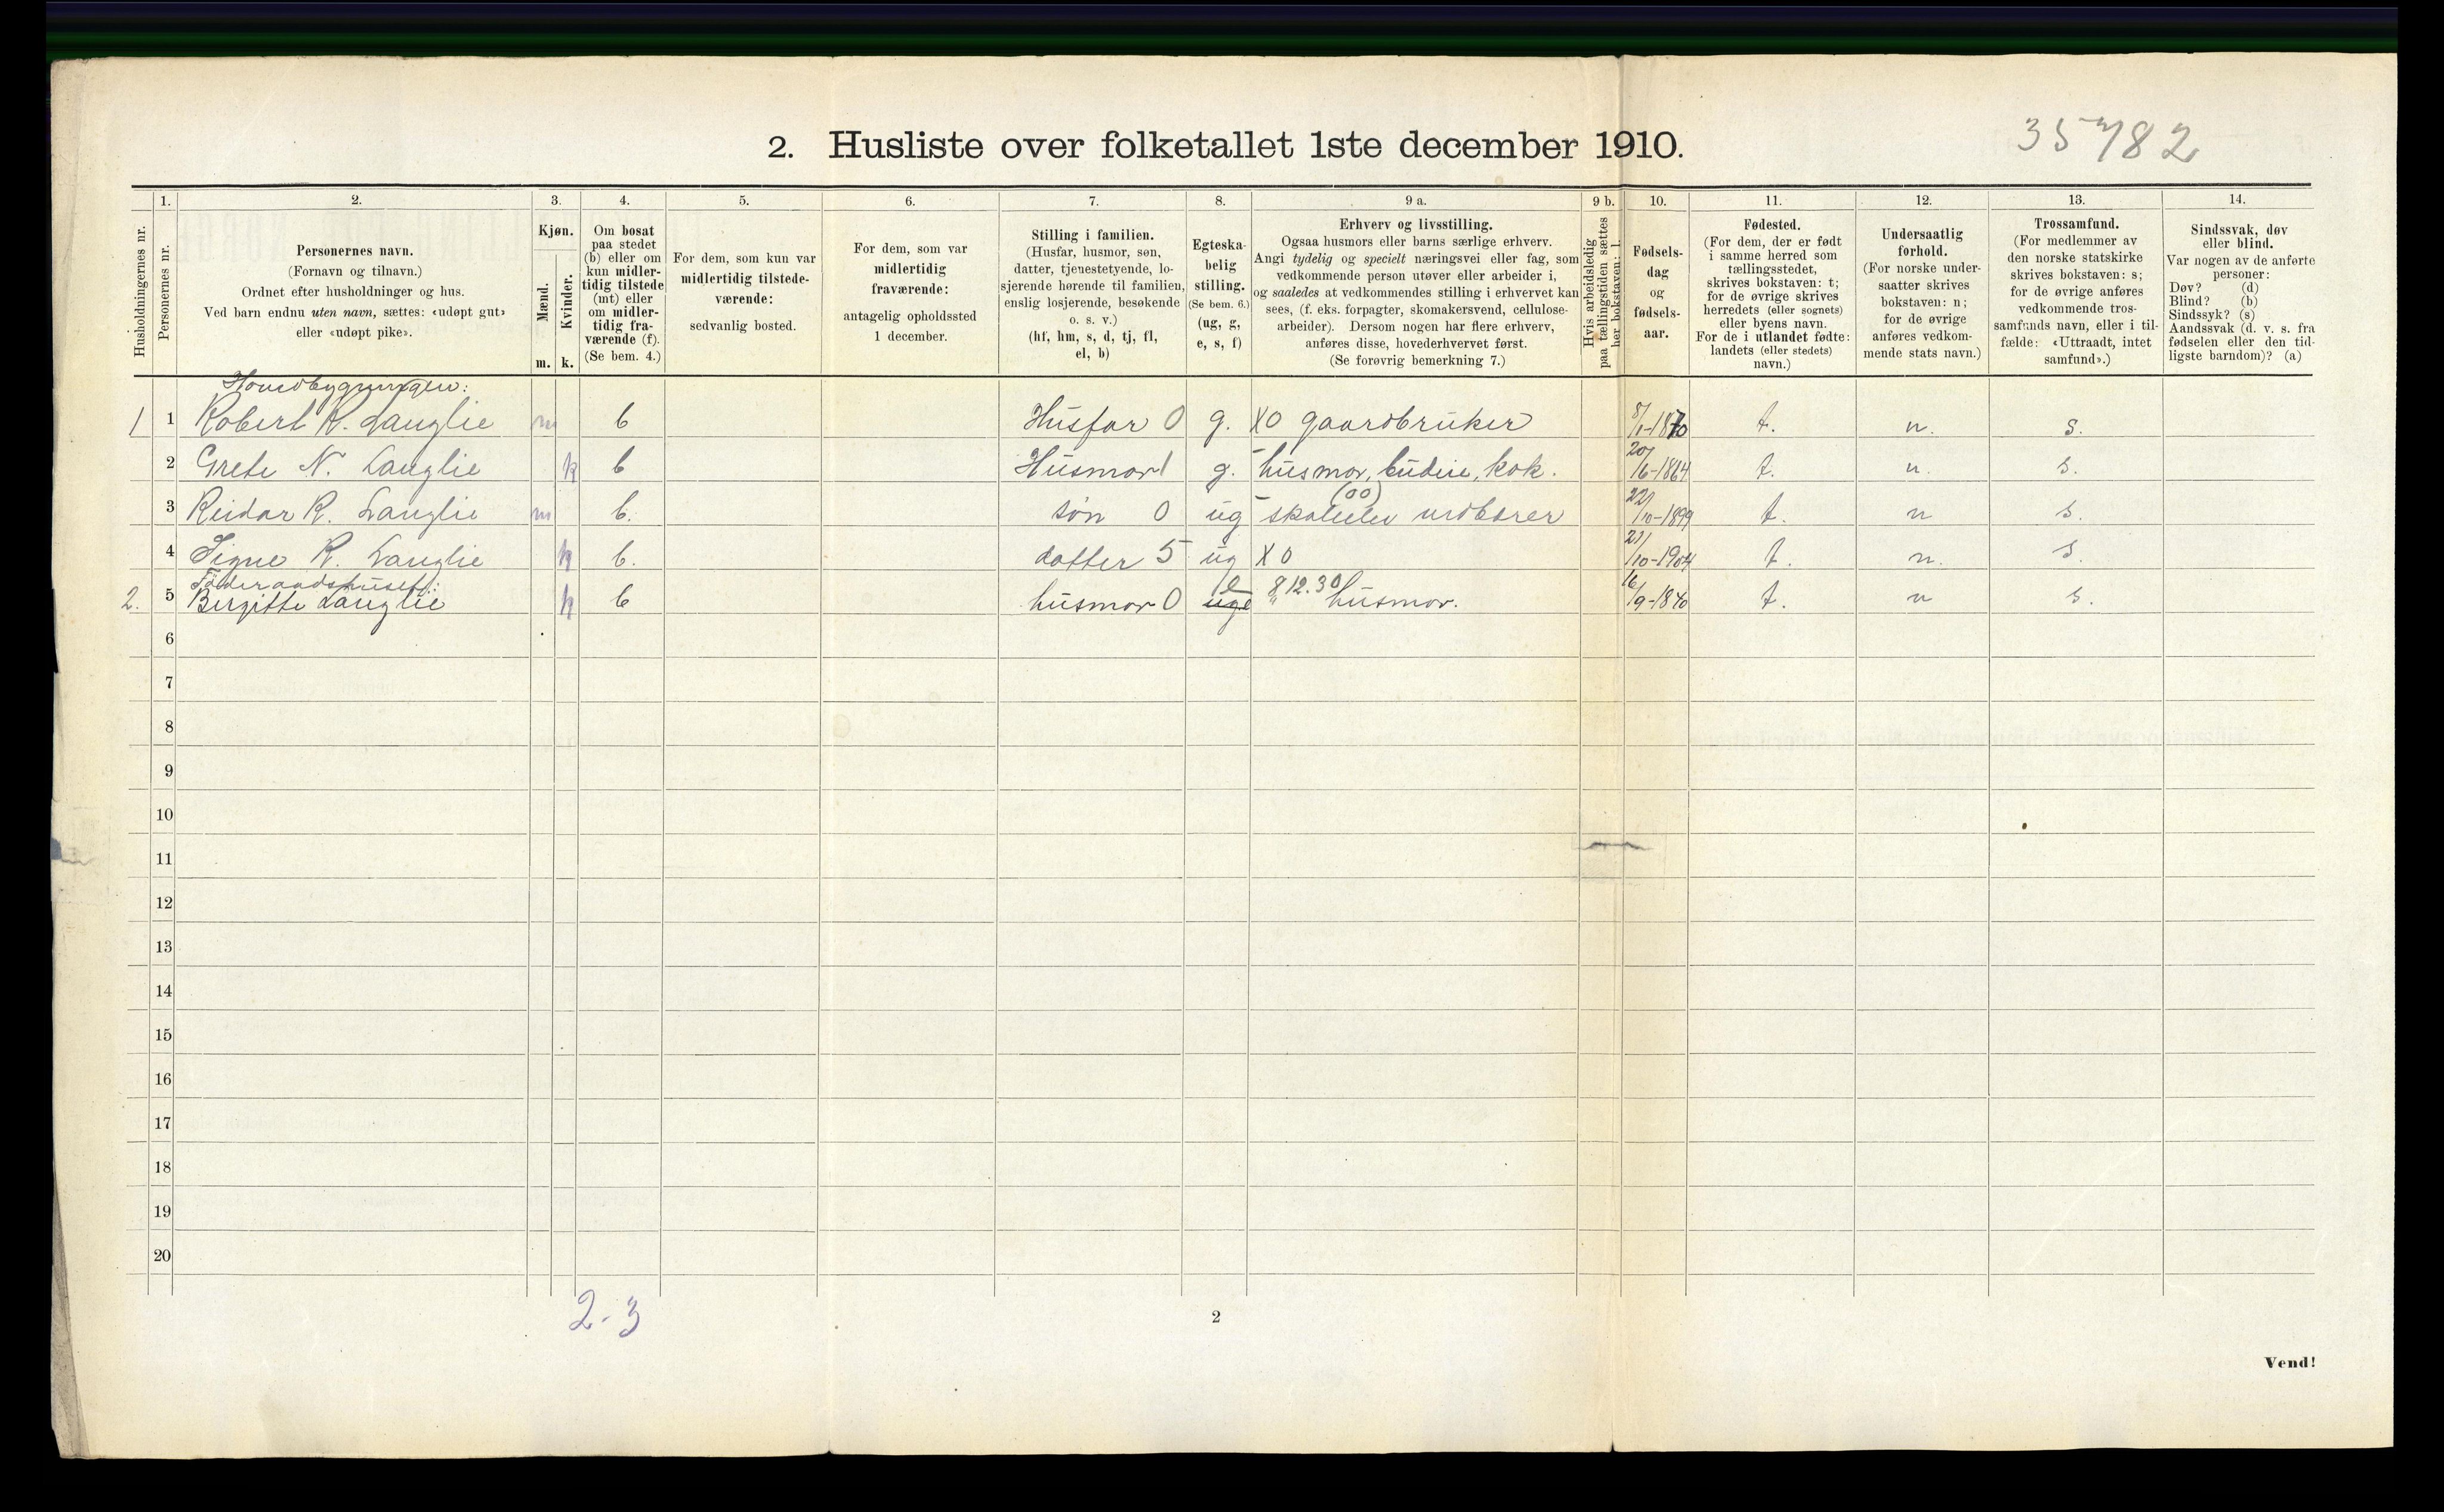 35782
2. Husliste over folketallet 1ste december 1910.
Husholdningernes nr.
1.
Personernes nr.
2.
Personernes navn.
(Fornavn og tilnavn.)
Ordnet efter husholdninger og hus.
Ved barn endnu uten navn, sættes: «udøpt gut»
eller «udøpt pike».
3.
Kjøn.
Mænd.
Kvinder.
m. k.
4.
Om bosat
paa stedet
(b) eller om
kun midler-
tidig tilstede
(mt) eller
om midler-
tidig fra-
værende (f).
(Se bem. 4.)
5.
For dem, som kun var
midlertidig tilstede-
værende:
sedvanlig bosted.
6.
For dem, som var
midlertidig
fraværende:
antagelig opholdssted
1 december.
7.
Stilling i familien.
(Husfar, husmor, søn,
datter, tjenestetyende, lo-
sjerende hørende til familien,
enslig losjerende, besøkende
o. s. v.)
(hf, hm, s, d, tj, fl,
el, b)
8.
Egteska-
belig
stilling.
(Se bem. 6.)
(ug, g,
e, s, f)
9 a.
Erhverv og livsstilling.
Ogsaa husmors eller barns særlige erhverv.
Angi tydelig og specielt næringsvei eller fag, som
vedkommende person utøver eller arbeider i,
og saaledes at vedkommendes stilling i erhvervet kan
sees, (f. eks. forpagter, skomakersvend, cellulose-
arbeider). Dersom nogen har flere erhverv,
anføres disse, hovederhvervet først.
(Se forøvrig bemerkning 7.)
9 b.
Hvis arbeidsledig
paa tællingstiden sættes
her bokstaven: l.
10.
Fødsels-
dag
og
fødsels-
aar.
11.
Fødested.
(For dem, der er født
i samme herred som
tællingsstedet,
skrives bokstaven: t;
for de øvrige skrives
herredets (eller sognets)
eller byens navn.
For de i utlandet fødte:
landets (eller stedets)
navn.)
12.
Undersaatlig
forhold.
(For norske under-
saatter skrives
bokstaven: n;
for de øvrige
anføres vedkom-
mende stats navn.)
13.
Trossamfund.
(For medlemmer av
den norske statskirke
skrives bokstaven: s;
for de øvrige anføres
vedkommende tros-
samfunds navn, eller i til-
fælde: «Uttraadt, intet
samfund».)
14.
Sindssvak, døv
eller blind.
Var nogen av de anførte
personer:
Døv? (d)
Blind? (b)
Sindssyk? (s)
Aandssvak (d. v. s. fra
fødselen eller den tid-
ligste barndom)? (a)
Hovedbygningen:
1 1 Robert R. Langlie m b Husfar 0 g. X0 gaardbruker 8/1-1870 t. n. s.
2 Grete N. Langlie k b Husmor 1 g. husmor, budeie, kok. 20/6-1864 t. n. s.
(00)
3 Reidar R. Langlie m b. søn 0 ug skoleelev 22/10-1899 t. n s.
4 Signe R. Langlie k b. datter 5 ug X0 21/10-1904 t. n. s.
Føderaadshuset:
2. 5 Birgitte Langlie k b husmor 0 e 812.30 husmor. 16/9-1840 t. n s.
6
7
8
9
10
11
12
13
14
15
16
17
18
19
20
2-3
2
Vend!